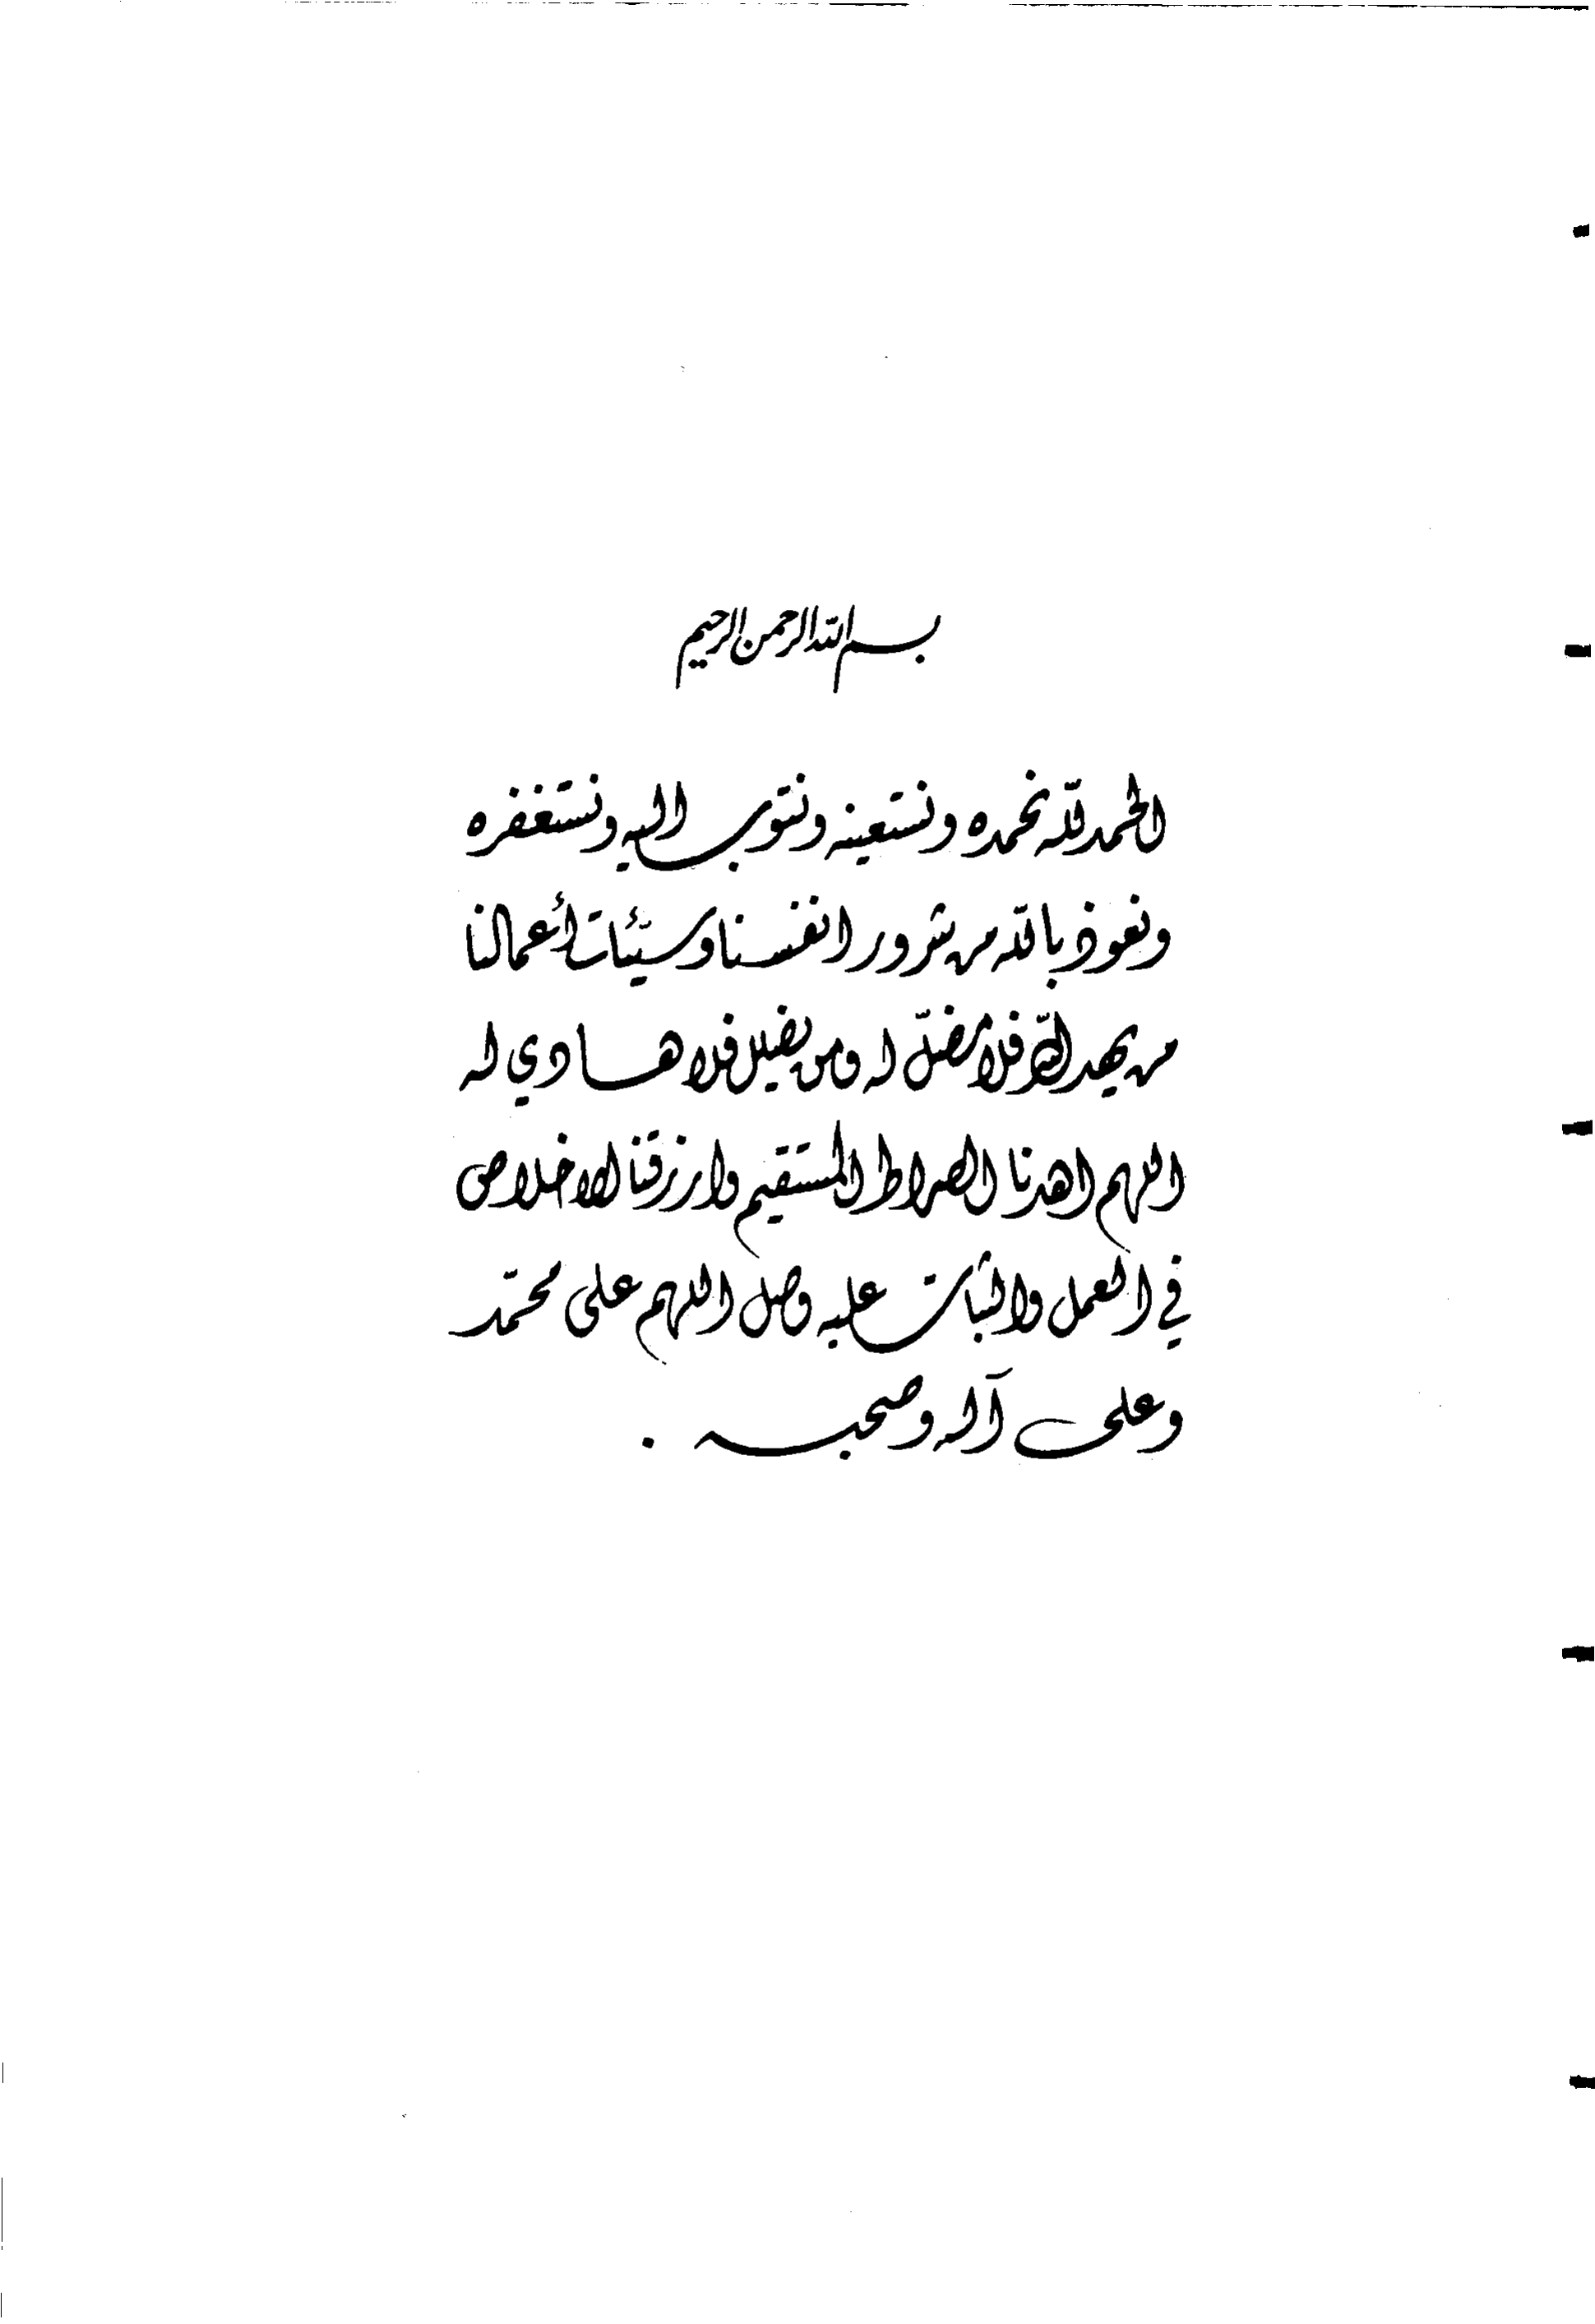 بسم الله الرحمن الرحيم
الحمد لله نحمده ونستعينه ونتوب اليه ونستغفره
ونعوذ بالله من شرور انفسنا وسيّئات أعمالنا
من يهد الله فلا مضلّ له ومن يضلل فلا هادي له
اللهم اهدنا الصراط المستقيم وارزقنا الاخلاص
في العمل والثبات عليه وصل اللهم على محمّد
وعلى آله وصحبه .